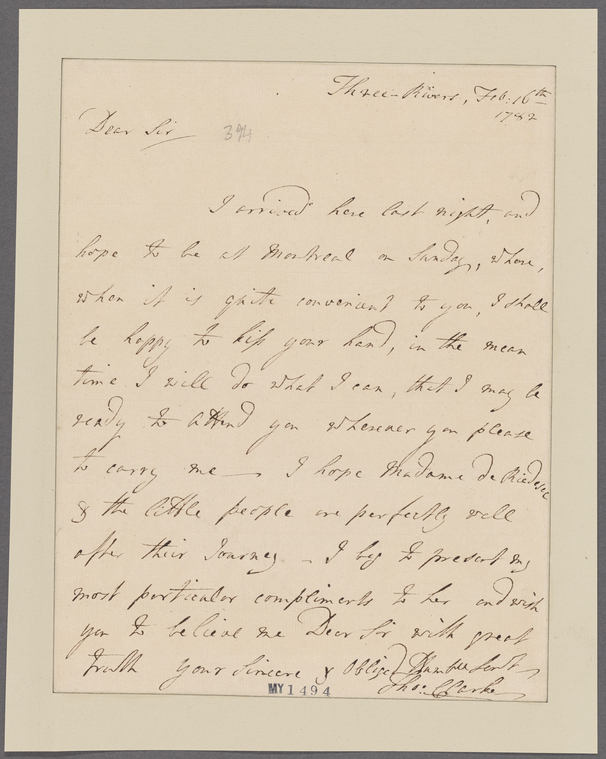 Three-Rivers, Feb: 16th
1782
Dear Sir
394
I arrived here last night, and
hope to be at Montreal on Sunday, where,
when it is quite convenient to you, I shall
be happy to kiss your hand, in the mean
time I will do what I can, that I may be
ready to attend you wherever you please
to carry me — I hope Madame de Riedesel
& the little people are perfectly well
after their Journey — I beg to present my
most particular compliments to her and wish
you to believe me Dear Sir with great
truth your Sincere & Obliged Humble Servt
Thos: Clarke
MY 1494